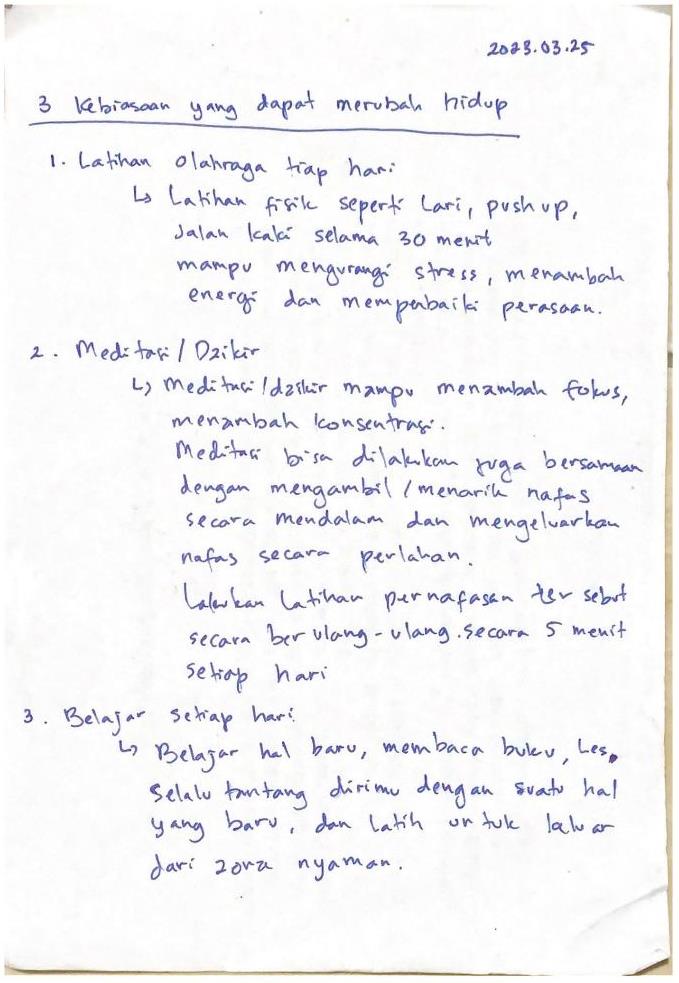 2023.03.25
3 Kebiasaan yang dapat merubah hidup
1. Latihan olahraga tiap hari
↳ Latihan fisik seperti Lari, push up,
Jalan kaki selama 30 menit
mampu mengurangi stress, menambah
energi dan memperbaiki perasaan.
2. Meditasi / Dzikir
↳ Meditasi/dzikir mampu menambah fokus,
menambah konsentrasi.
Meditasi bisa dilakukan juga bersamaan
dengan mengambil / menarik nafas
secara mendalam dan mengeluarkan
nafas secara perlahan.
Lakukan Latihan pernafasan ter sebut
secara ber ulang-ulang. secara 5 menit
setiap hari
3. Belajar setiap hari
↳ Belajar hal baru, membaca buku, Les,
Selalu tantang dirimu dengan suatu hal
yang baru, dan Latih untuk keluar
dari zona nyaman.